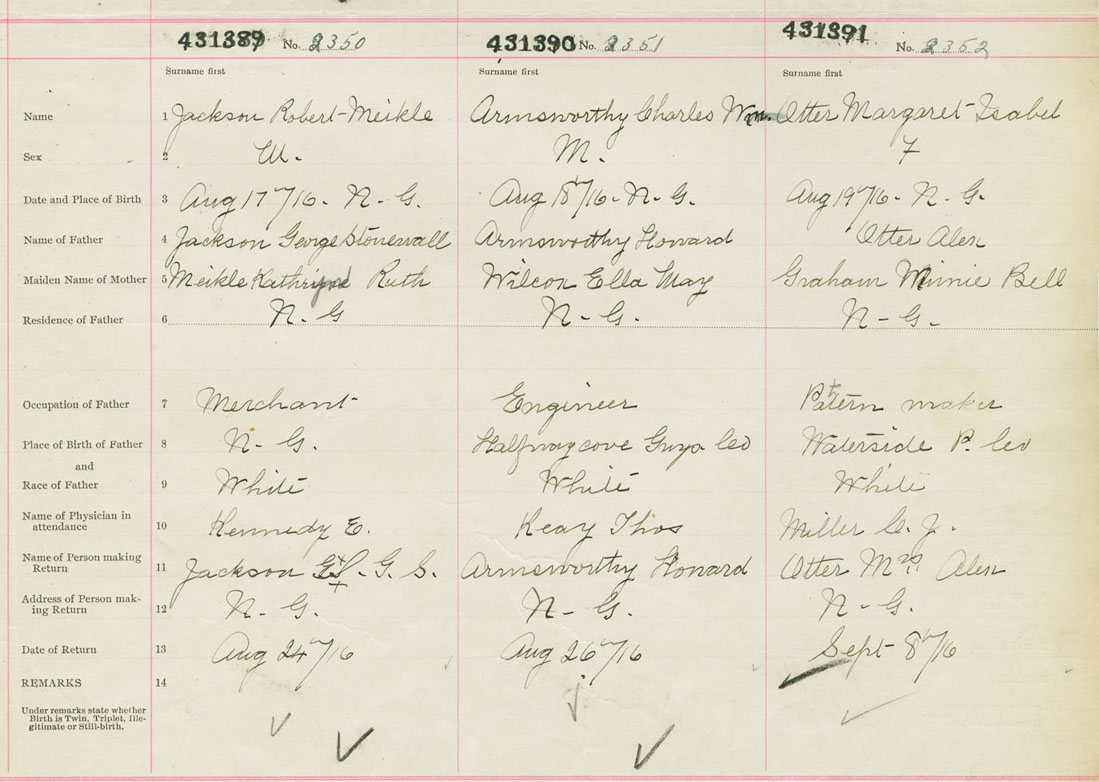 431389 No. 2350 431390 No. 2351 431391 No. 2352
Surname first Surname first Surname first
Name 1 Jackson Robert Meikle Armsworthy Charles Wm. Otter Margaret Isabel
Sex 2 M. M. F
Date and Place of Birth 3 Aug 17th/16. N-G. Aug 18th/16. N-G. Aug 19th/16. N-G.
Name of Father 4 Jackson George Stonewall Armsworthy Howard Otter Alex
Maiden Name of Mother 5 Meikle Ruth Wilcox Ella May Graham Minnie Bell
Residence of Father 6 N-G N-G. N-G.
Occupation of Father 7 Merchant Engineer Pattern maker
Place of Birth of Father 8 N-G. Halfwaycove Guys. Co Waterside P. Co
and
Race of Father 9 White White White
Name of Physician in
attendance 10 Kennedy E. Keay Thos Miller C. J.
Name of Person making
Return 11 Jackson G. S. Armsworthy Howard Otter Mrs. Alex
Address of Person mak-
ing Return 12 N-G. N-G. N-G.
Date of Return 13 Aug 24th/16 Aug 26th/16 Sept 8th/16
REMARKS 14
Under remarks state whether
Birth is Twin, Triplet, Ille-
gitimate or Still-birth.